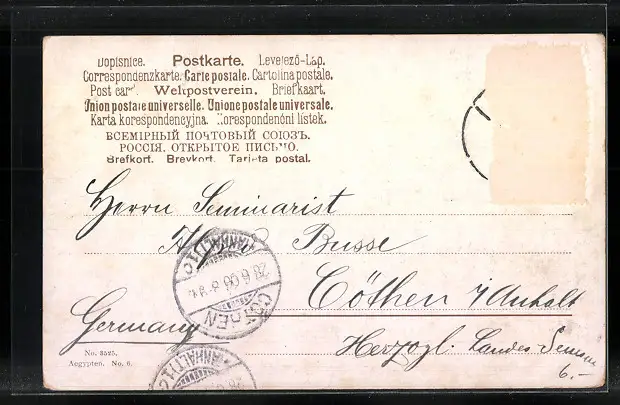 Dopisnice. Postkarte. Levelező-Lap.
Correspondenzkarte. Carte postale. Cartolina postale.
Post card. Weltpostverein. Briefkaart.
Union postale universelle. Unione postale universale.
Karta korespondencyjna. Korespondenční lístek.
ВСЕМІРНЫЙ ПОЧТОВЫЙ СОЮЗЪ.
РОССІЯ. ОТКРЫТОЕ ПИСЬМО.
Brefkort. Brevkort. Tarjeta postal.
Herrn Seminarist
Busse
Cöthen i/Anhalt
Germany
Herzogl. Landes-
6.-
No. 3525.
Aegypten. No. 6.
(ANHALT) 1 c
28 6 00
CÖTHEN
(ANHALT) 1 c